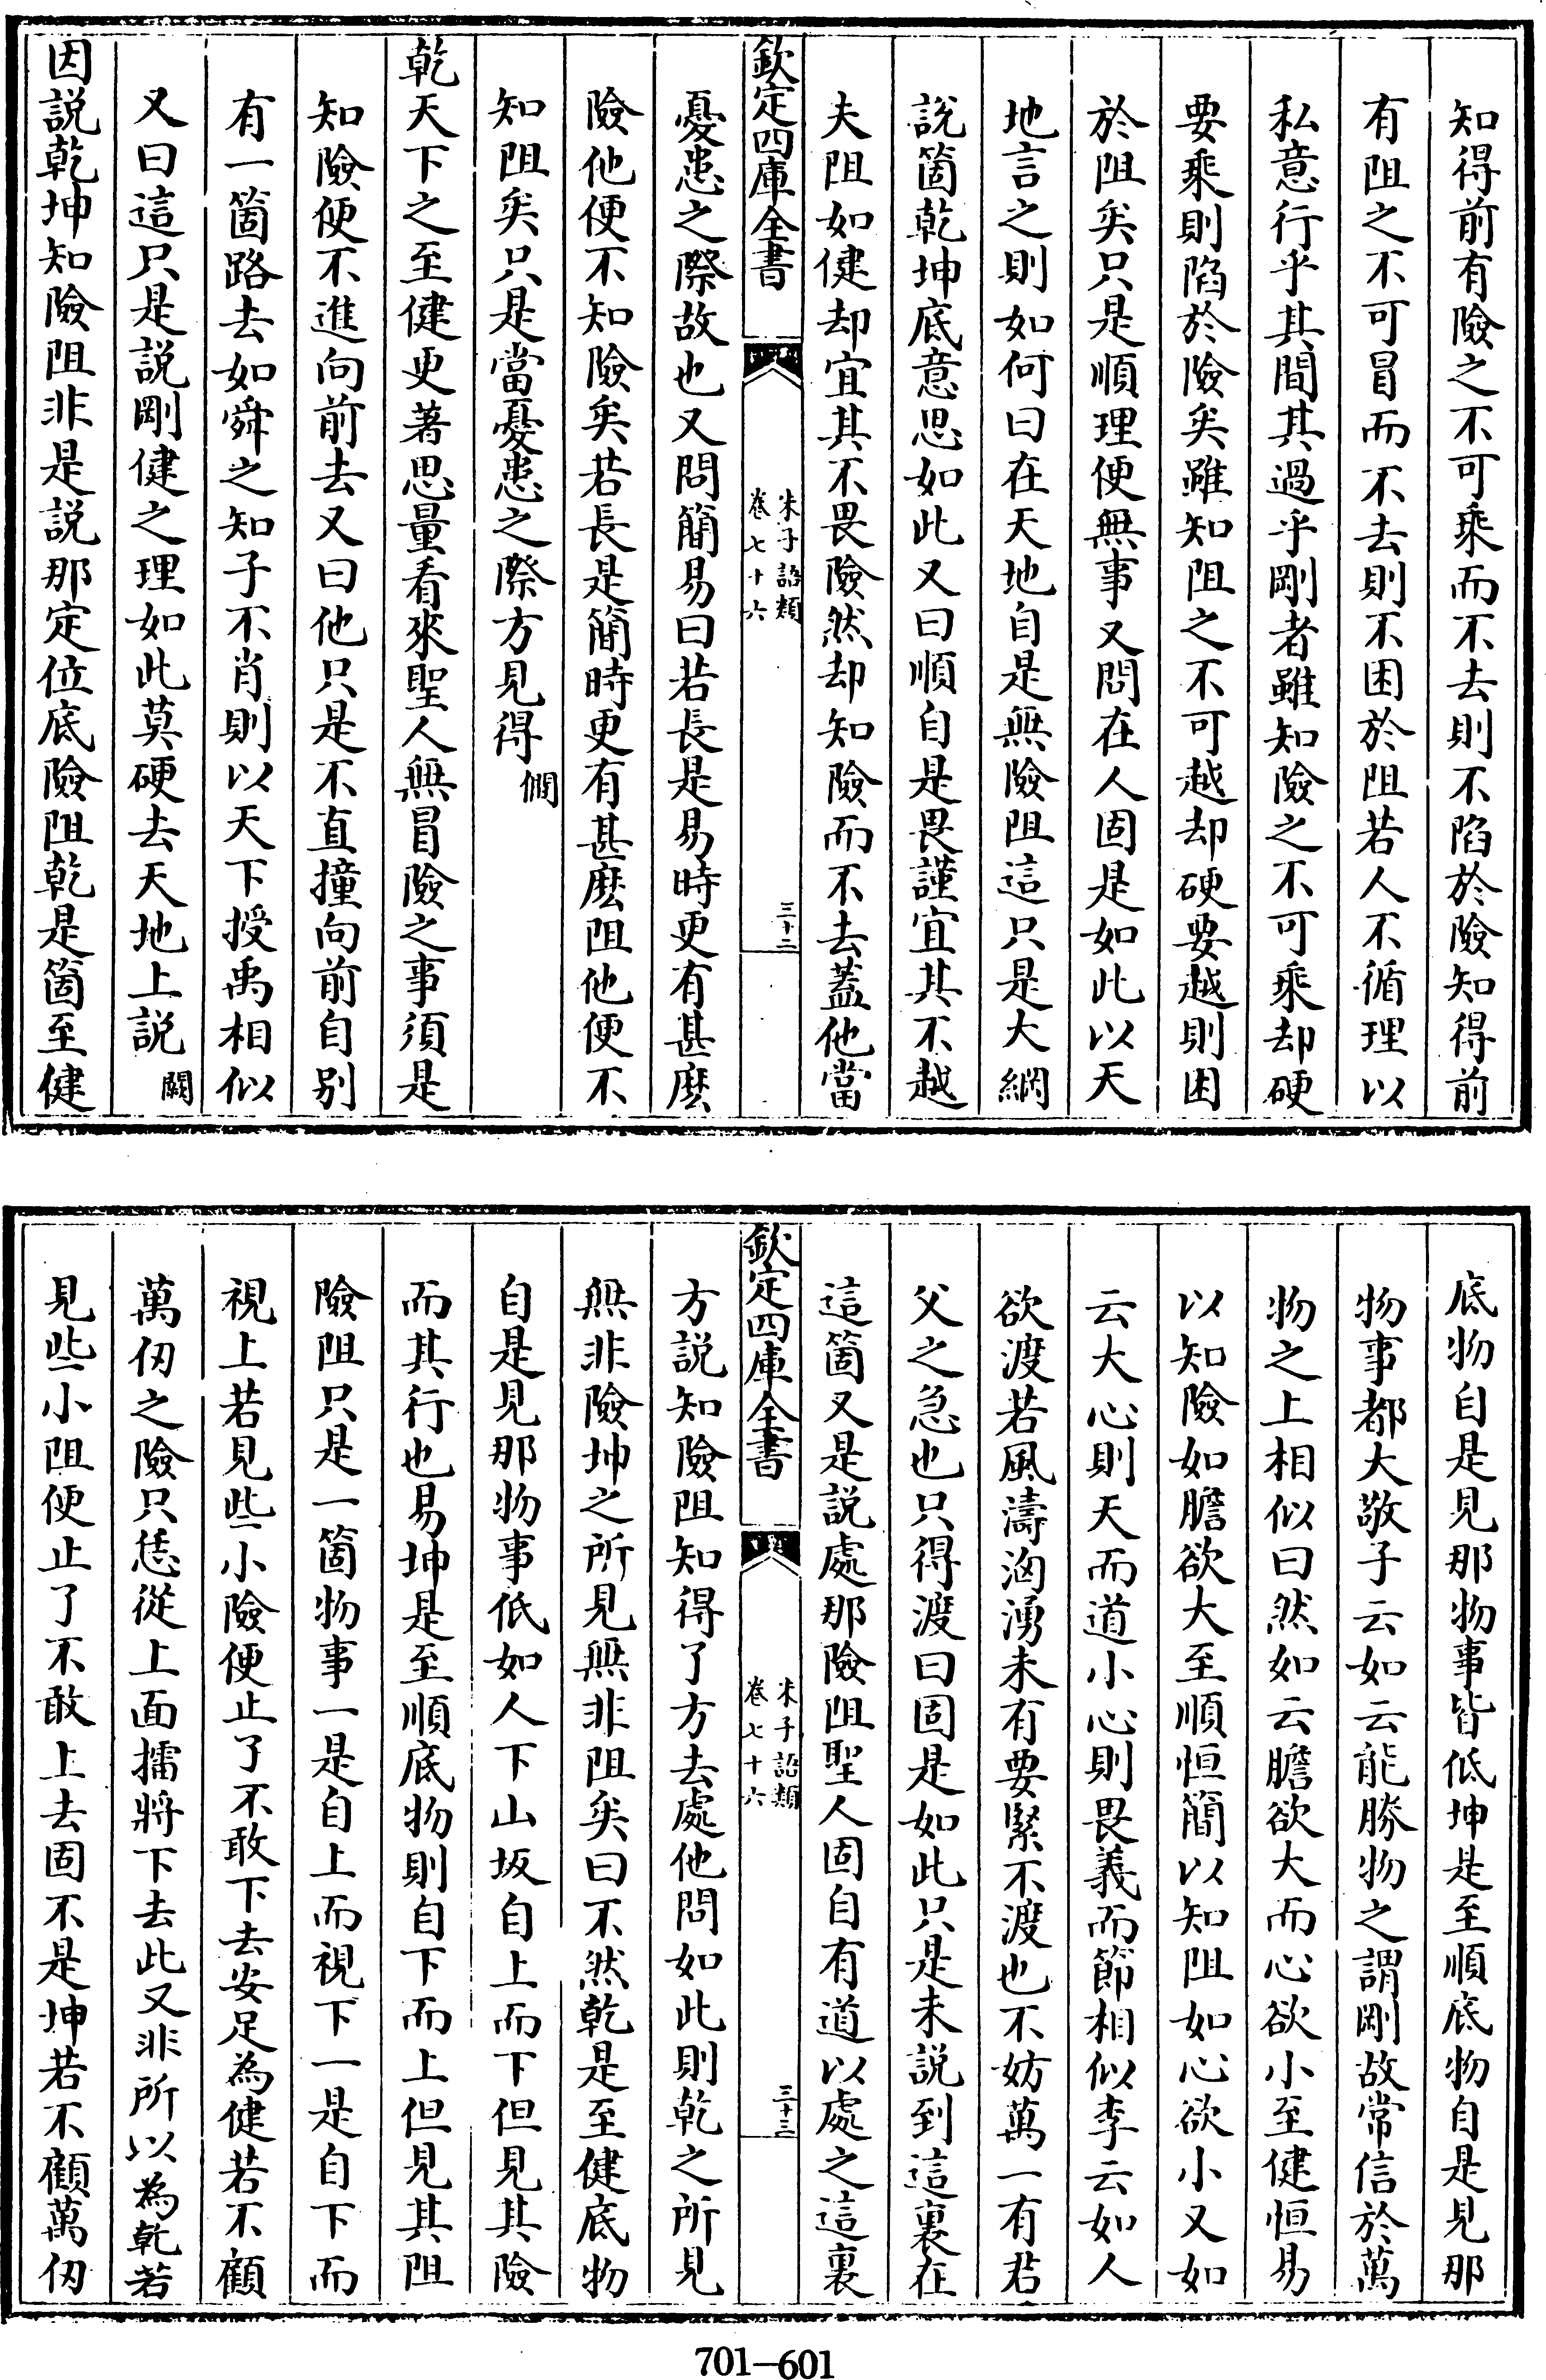 知得前有險之不可乘而不去則不陷於險知得前
有阻之不可冒而不去則不困於阻若人不循理以
私意行乎其間其過乎剛者雖知險之不可乘却硬
要乘則陷於險矣雖知阻之不可越却硬要越則困
於阻矣只是順理便無事又問在人固是如此以天
地言之則如何曰在天地自是無險阻這只是大綱
說箇乾坤底意思如此又曰順自是畏謹宜其不越
夫阻如健却宜其不畏險然却知險而不去蓋他當
欽定四庫全書
朱子語類
卷七十六
三十二
憂患之際故也又問簡易曰若長是易時更有甚麽
險他便不知險矣若長是簡時更有甚麽阻他便不
知阻矣只是當憂患之際方見得 僩
乾天下之至健更著思量看來聖人無冒險之事須是
知險便不進向前去又曰他只是不直撞向前自别
有一箇路去如舜之知子不肖則以天下授禹相似
又曰這只是説剛健之理如此莫硬去天地上説 闕
因説乾坤知險阻非是説那定位底險阻乾是箇至健
底物自是見那物事皆低坤是至順底物自是見那
物事都大敬子云如云能勝物之謂剛故常信於萬
物之上相似曰然如云膽欲大而心欲小至健恒易
以知險如膽欲大至順恒簡以知阻如心欲小又如
云大心則天而道小心則畏義而節相似李云如人
欲渡若風濤洶湧未有要緊不渡也不妨萬一有君
父之急也只得渡曰固是如此只是未説到這裏在
這箇又是説處那險阻聖人固自有道以處之這裏
欽定四庫全書
朱子語類
卷七十六
三十三
方説知險阻知得了方去處他問如此則乾之所見
無非險坤之所見無非阻矣曰不然乾是至健底物
自是見那物事低如人下山坂自上而下但見其險
而其行也易坤是至順底物則自下而上但見其阻
險阻只是一箇物事一是自上而視下一是自下而
視上若見些小險便止了不敢下去安足為健若不顧
萬仞之險只恁從上面擂將下去此又非所以為乾若
見些小阻便止了不敢上去固不是坤若不顧萬仞
701—601